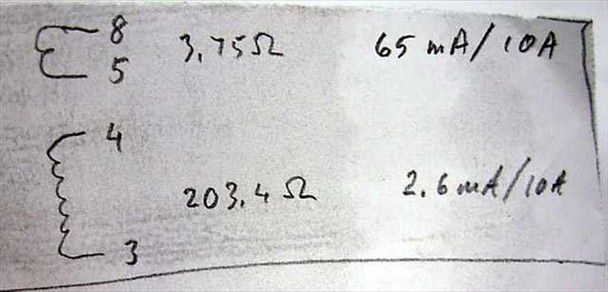 8 3,75Ω 65 mA/10A
5
4
203,4Ω 2.6mA/10A
3